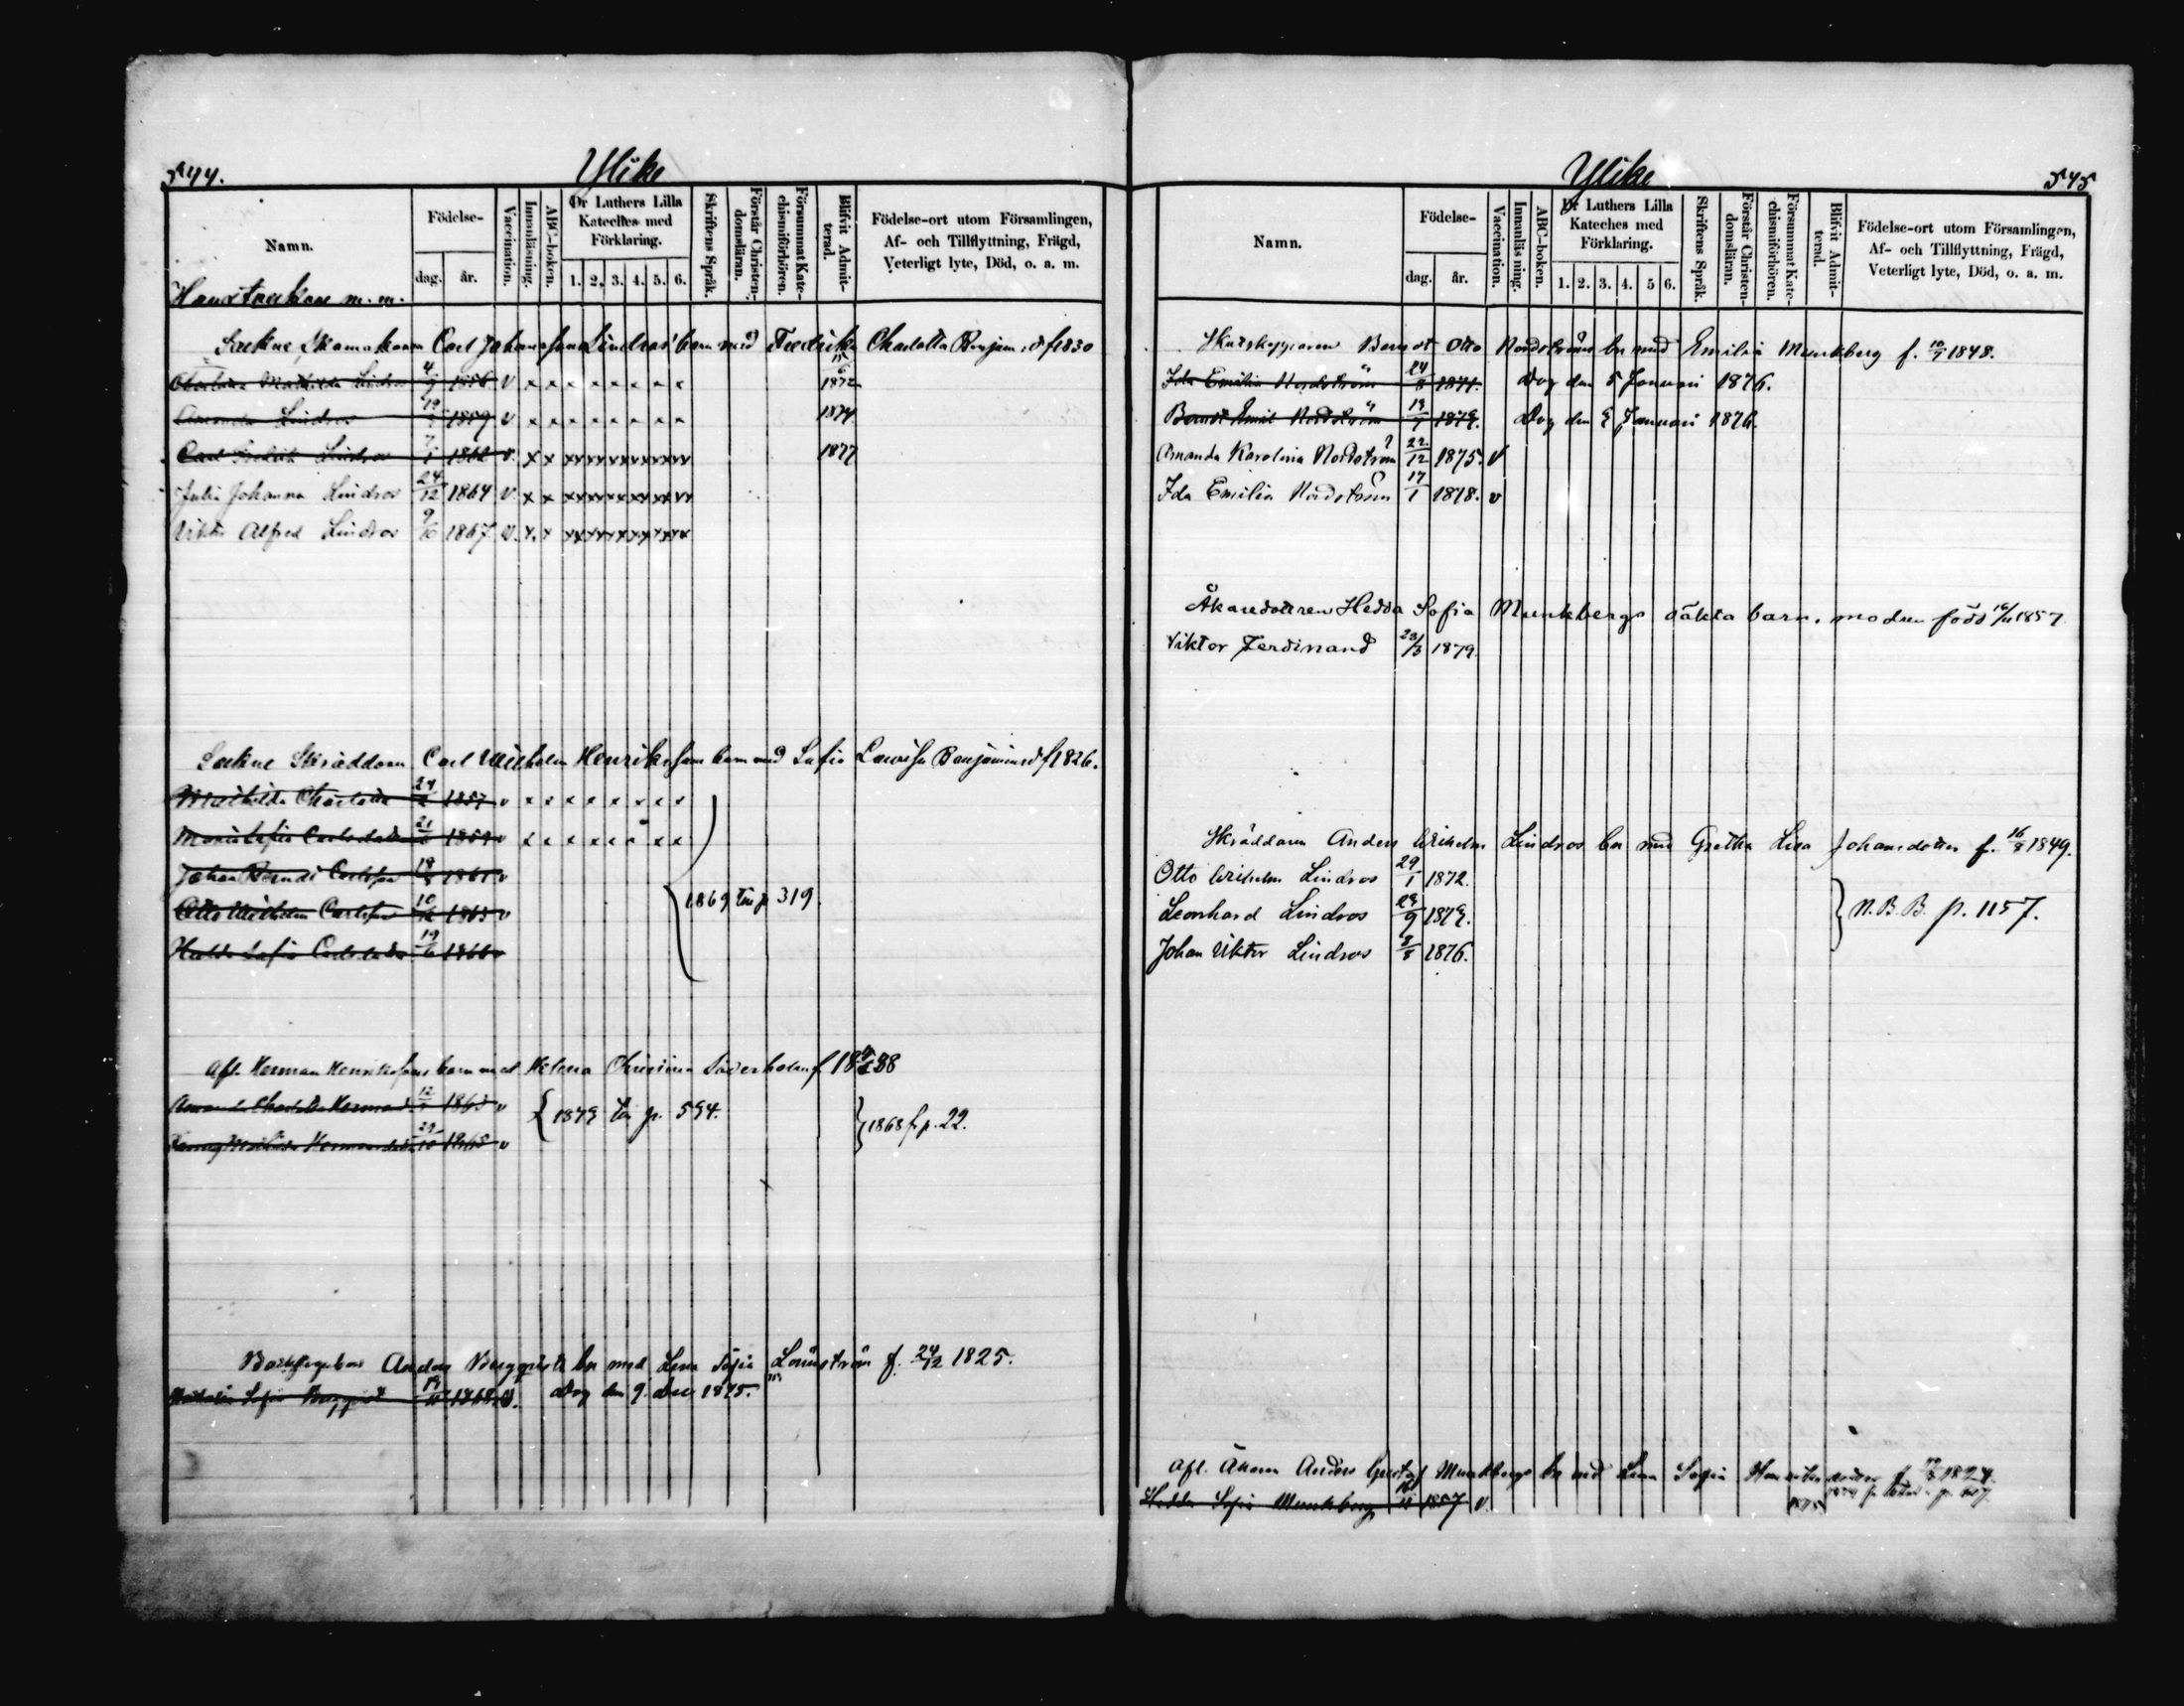 544.
Ylike
Namn.
Födelse-
dag.
år.
Vaccination.
Innanläsning.
ABC-boken.
Dr Luthers Lilla
Kateches med
Förklaring.
1. 2. 3. 4. 5. 6.
Skriftens Språk.
Förstår Christen-
domsläran.
Försummat Kate-
chismiförhören.
Blifvit Admit-
terad.
Födelse-ort utom Församlingen,
Af- och Tillflyttning, Frägd,
Veterligt lyte, Död, o. a. m.
m. m.
Carl Johansson Lindros' barn med Fredrika Charlotta Benjam.dr f 1830
Mathilda Lindros 4/9 1856 v x x x x x x x x 1872
Amanda Lindros 1859 v x x x x x x x x 1874
Carl Fredrik Lindros 7/1 1862 v. x x xxxxxxxxxxxx 1877
Julia Johanna Lindros 24/12 1864 v x x xxxxxxxxxxxx
Viktor Alfred Lindros 9/10 1867 v. x x xxxxxxxxxxxx
Skräddaren Carl Wilhelm Henriksson barn med Sofia Lovisa Benjaminsdr f 1826.
Mathilda Charlotta 24 1857 v x x x x x x x x
Maria Sofia Carlsdotter 21 1859 v x x x x x x x x
Johan Berndt Carlsson 18/8 1861 v
Otto Wilhelm Carlsson 10/12 1863 v
Hulda Sofia Carlsdotter 19/6 1866 v
1869 till p 319.
Afl. Herman Henrikssons barn med Helena Christina Söderholm f 1838
Amanda Charlotta Hermansd. 12 1863 v
1879 till p. 594.
1868 f p. 22.
Fanny Mathilda Hermansdotter 29/10 1865 v
Anders Bergqvists bn med Lena Sofia Lönnström f. 24/12 1825.
Sofia Bergqvist 19/11 1868 v. Dog den 9 dec 1875.
Ylike
545
Namn.
Födelse-
dag.
år.
Vaccination.
Innanläsning.
ABC-boken.
Dr Luthers Lilla
Kateches med
Förklaring.
1. 2. 3. 4. 5 6.
Skriftens Språk.
Förstår Christen-
domsläran.
Försummat Kate-
chismiförhören.
Blifvit Admit-
terad.
Födelse-ort utom Församlingen,
Af- och Tillflyttning, Frägd,
Veterligt lyte, Död, o. a. m.
Berndt Otto Nordströms bn med Emilia Munkberg f. 10/9 1848.
Ida Emilia Nordström 24/8 1871. Dog den 5 Januari 1876.
Berndt Emil Nordström 13/1 1879. Dog den 9 Januari 1876.
Amanda Karolina Nordström 22/12 1875. v
Ida Emilia Nordström 17/1 1878. v
Åkaredottren Hedda Sofia Munkbergs oäkta barn. modren född 16/11 1857
Viktor Ferdinand 23/3 1879.
Skräddaren Anders Wilhelm Lindros bn med Gretha Lisa Johansdotter f. 16/8 1849.
Otto Wilhelm Lindros 29/1 1872.
Leonhard Lindros 29/9 1879.
N. B. B. p. 1157.
Johan Viktor Lindros 8/8 1876.
Afl. Åkaren Anders Gustaf Munkbergs bn med Lena Sofia
Hedda Sofia Munkberg 16/11 1857 v.